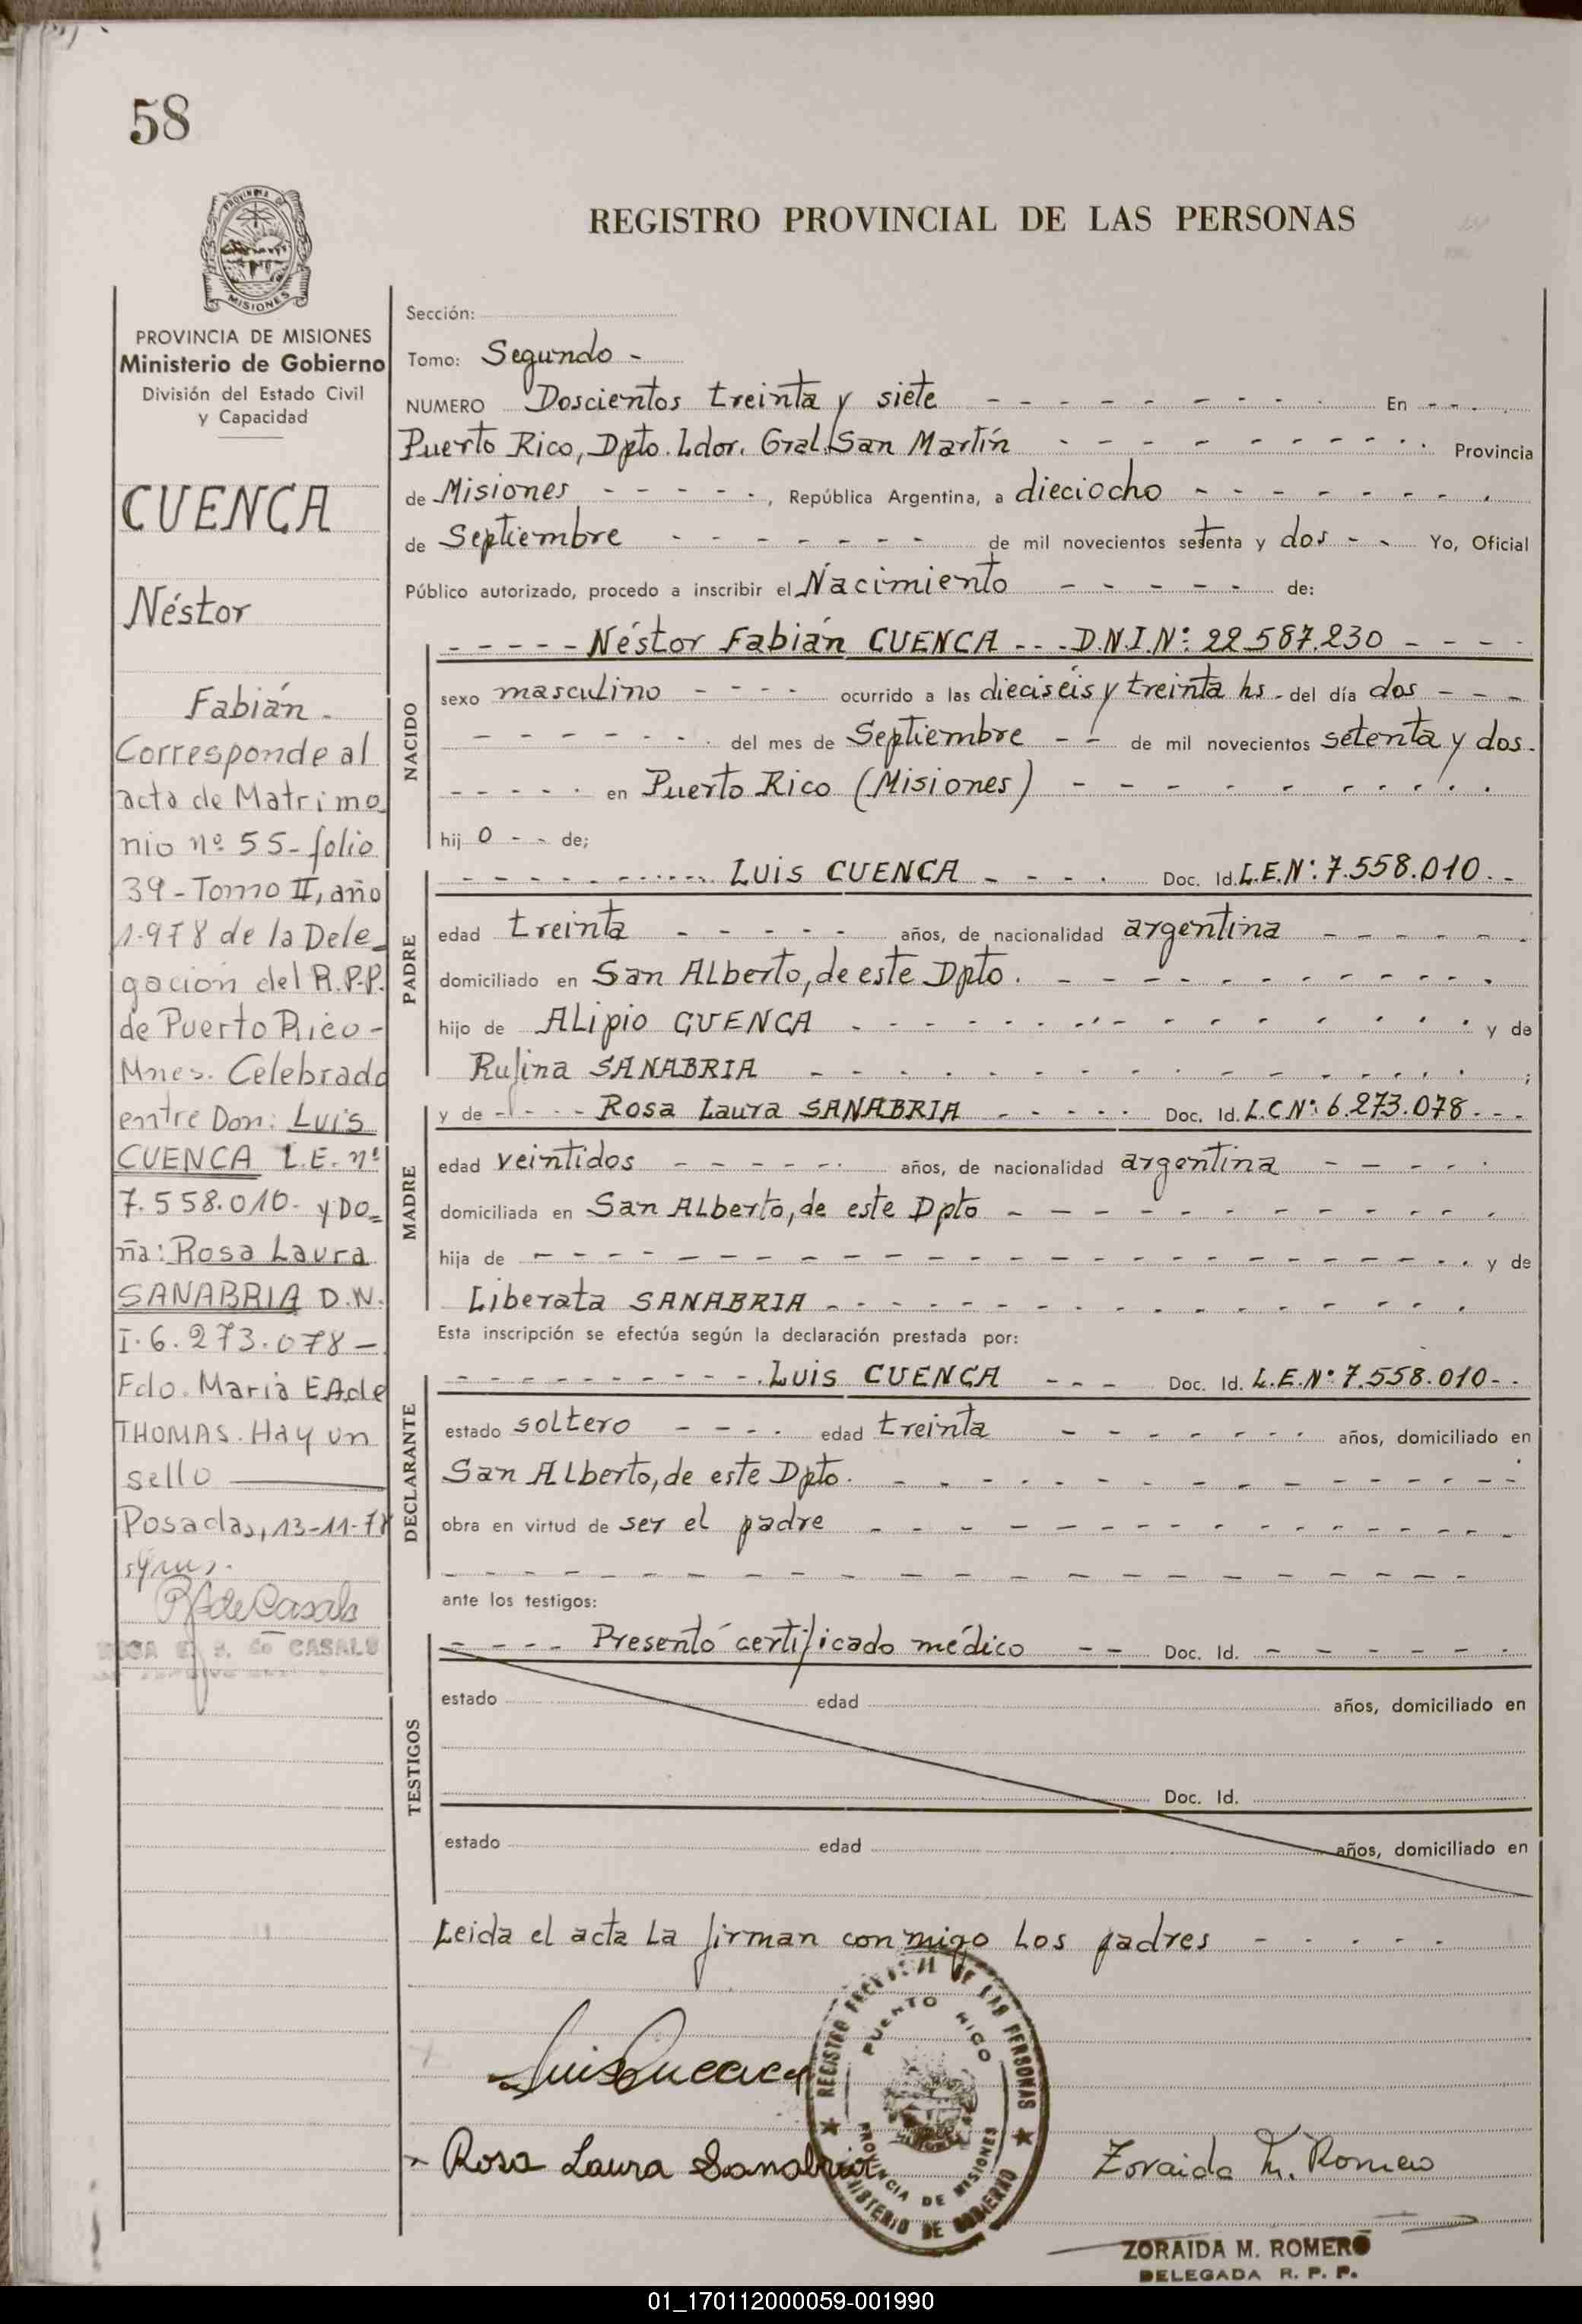 58
PROVINCIA DE MISIONES
MISIONES
PROVINCIA DE MISIONES
Ministerio de Gobierno
División del Estado Civil
y Capacidad
CUENCA
Néstor
Fabián -
Corresponde al
acta de Matrimo-
nio nº 55- folio
39 - Tomo II, año
1.978 de la Dele-
gación del R.P.P.
de Puerto Rico -
Mnes. Celebrado
entre Don: Luis
CUENCA L.E. nº
7.558.010. y Do=
ña: Rosa Laura
SANABRIA D.N.
I. 6.273.078 -
Fdo. Maria E A de
THOMAS. Hay un
sello
Posadas, 13-11-78
de CASALS
REGISTRO PROVINCIAL DE LAS PERSONAS
Sección:
Tomo: Segundo -
NUMERO Doscientos treinta y siete - - - - - - - - - En - - -
Puerto Rico, Dpto. Ldor. Gral. San Martín - - - - - - - - - - Provincia
de Misiones - - - - - , República Argentina, a dieciocho - - - - - - - -
de Septiembre - - - - - - - de mil novecientos setenta y dos - - Yo, Oficial
Público autorizado, procedo a inscribir el Nacimiento - - - - - de:
NACIDO
- - - - - Néstor Fabián CUENCA - - - D.N.I.Nº: 22.587.230 - - - -
sexo masculino - - - - ocurrido a las dieciséis y treinta hs - del día dos - - -
- - - - - - - del mes de Septiembre - - de mil novecientos setenta y dos -
- - - - - en Puerto Rico (Misiones) - - - - - - - - - -
hij o - - de;
PADRE
- - - - - - - - Luis CUENCA - - - - Doc. Id. L.E.Nº: 7.558.010. - -
edad treinta - - - - - años, de nacionalidad argentina - - - - - -
domiciliado en San Alberto, de este Dpto. - - - - - - - - - - -
hijo de Alipio CUENCA - - - - - - - - - - - - - y de
Rufina SANABRIA - - - - - - - - - - - - - - ;
MADRE
y de - - - - Rosa Laura SANABRIA - - - - - Doc. Id. L.C.Nº: 6.273.078 - - -
edad veintidos - - - - - años, de nacionalidad argentina - - - - -
domiciliada en San Alberto, de este Dpto - - - - - - - - - - - -
hija de - - - - - - - - - - - - - - - - - - y de
Liberata SANABRIA - - - - - - - - - - - - - -
Esta inscripción se efectúa según la declaración prestada por:
DECLARANTE
- - - - - - - - - - Luis CUENCA - - - Doc. Id. L.E.Nº 7.558.010 - -
estado soltero - - - - edad treinta - - - - - - - - años, domiciliado en
San Alberto, de este Dpto. - - - - - - - - - - - - - -
obra en virtud de ser el padre - - - - - - - - - - - - - -
- - - - - - - - - - - - - - - - - - - - - -
ante los testigos:
TESTIGOS
- - - - Presentó certificado médico - - Doc. Id. - - - - - -
estado edad años, domiciliado en
Doc. Id.
estado edad años, domiciliado en
Leida el acta la firman conmigo los padres - - - - -
Luis Cuenca
REGISTRO PROVINCIAL DE LAS PERSONAS
PUERTO RICO
PROVINCIA DE MISIONES
MINISTERIO DE GOBIERNO
Rosa Laura Sanabria
Zoraida M. Romero
ZORAIDA M. ROMERO
DELEGADA R. P. P.
01_170112000059-001990